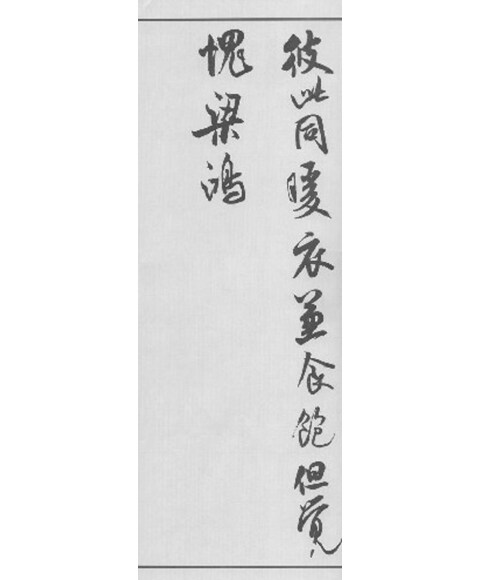 彼此同暖衣兼食饱但觉
愧梁鸿